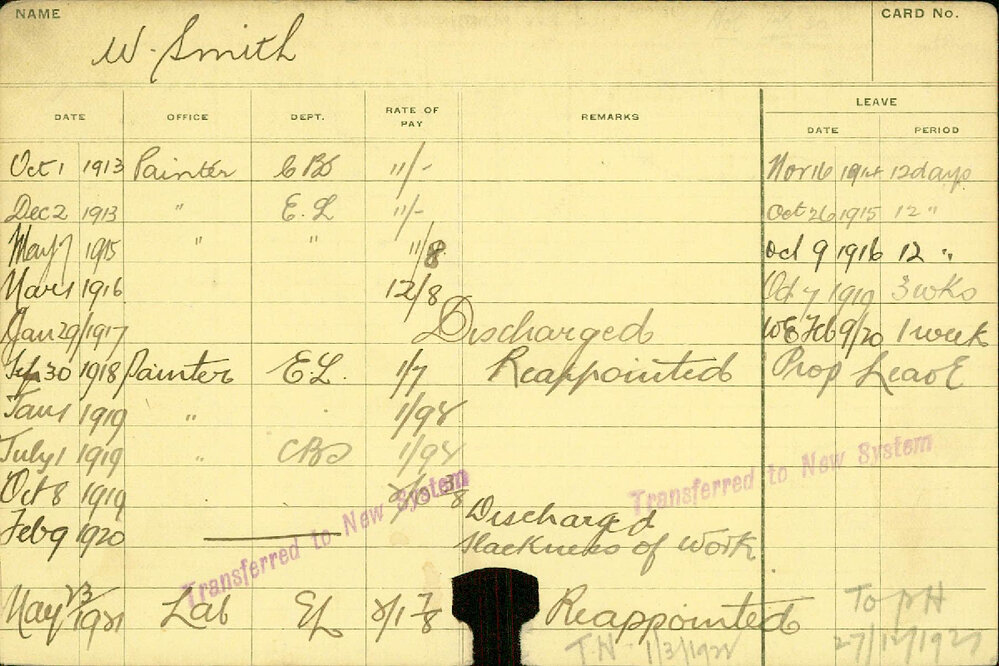 NAME CARD No.
W. Smith
DATE OFFICE DEPT. RATE OF PAY REMARKS LEAVE
DATE PERIOD
Oct 1 1913 Painter 11/- Nov 16 1914 12 days
Dec 2 1913 " E.L 11/- Oct 26 1915 12 "
May 7 1915 " " 11/8 Oct 9 1916 12 "
Mar 1 1916 12/8 Oct 7 1919 3 wks
Jan 29/1917 Discharged WE Feb 9/20 1 week
30 1918 Painter E.L. 1/7 Reappointed Prop Leave
Jan 1 1919 " 1/9
July 1 1919 " 1/9
Transferred to New System
Oct 8 1919
Feb 9 1920 Discharged
Slackness of Work
Transferred to New System
May 23/1921 Lab EL 2/1 7/8 Reappointed To PH
T.N. 1/3/192 27/12/1927